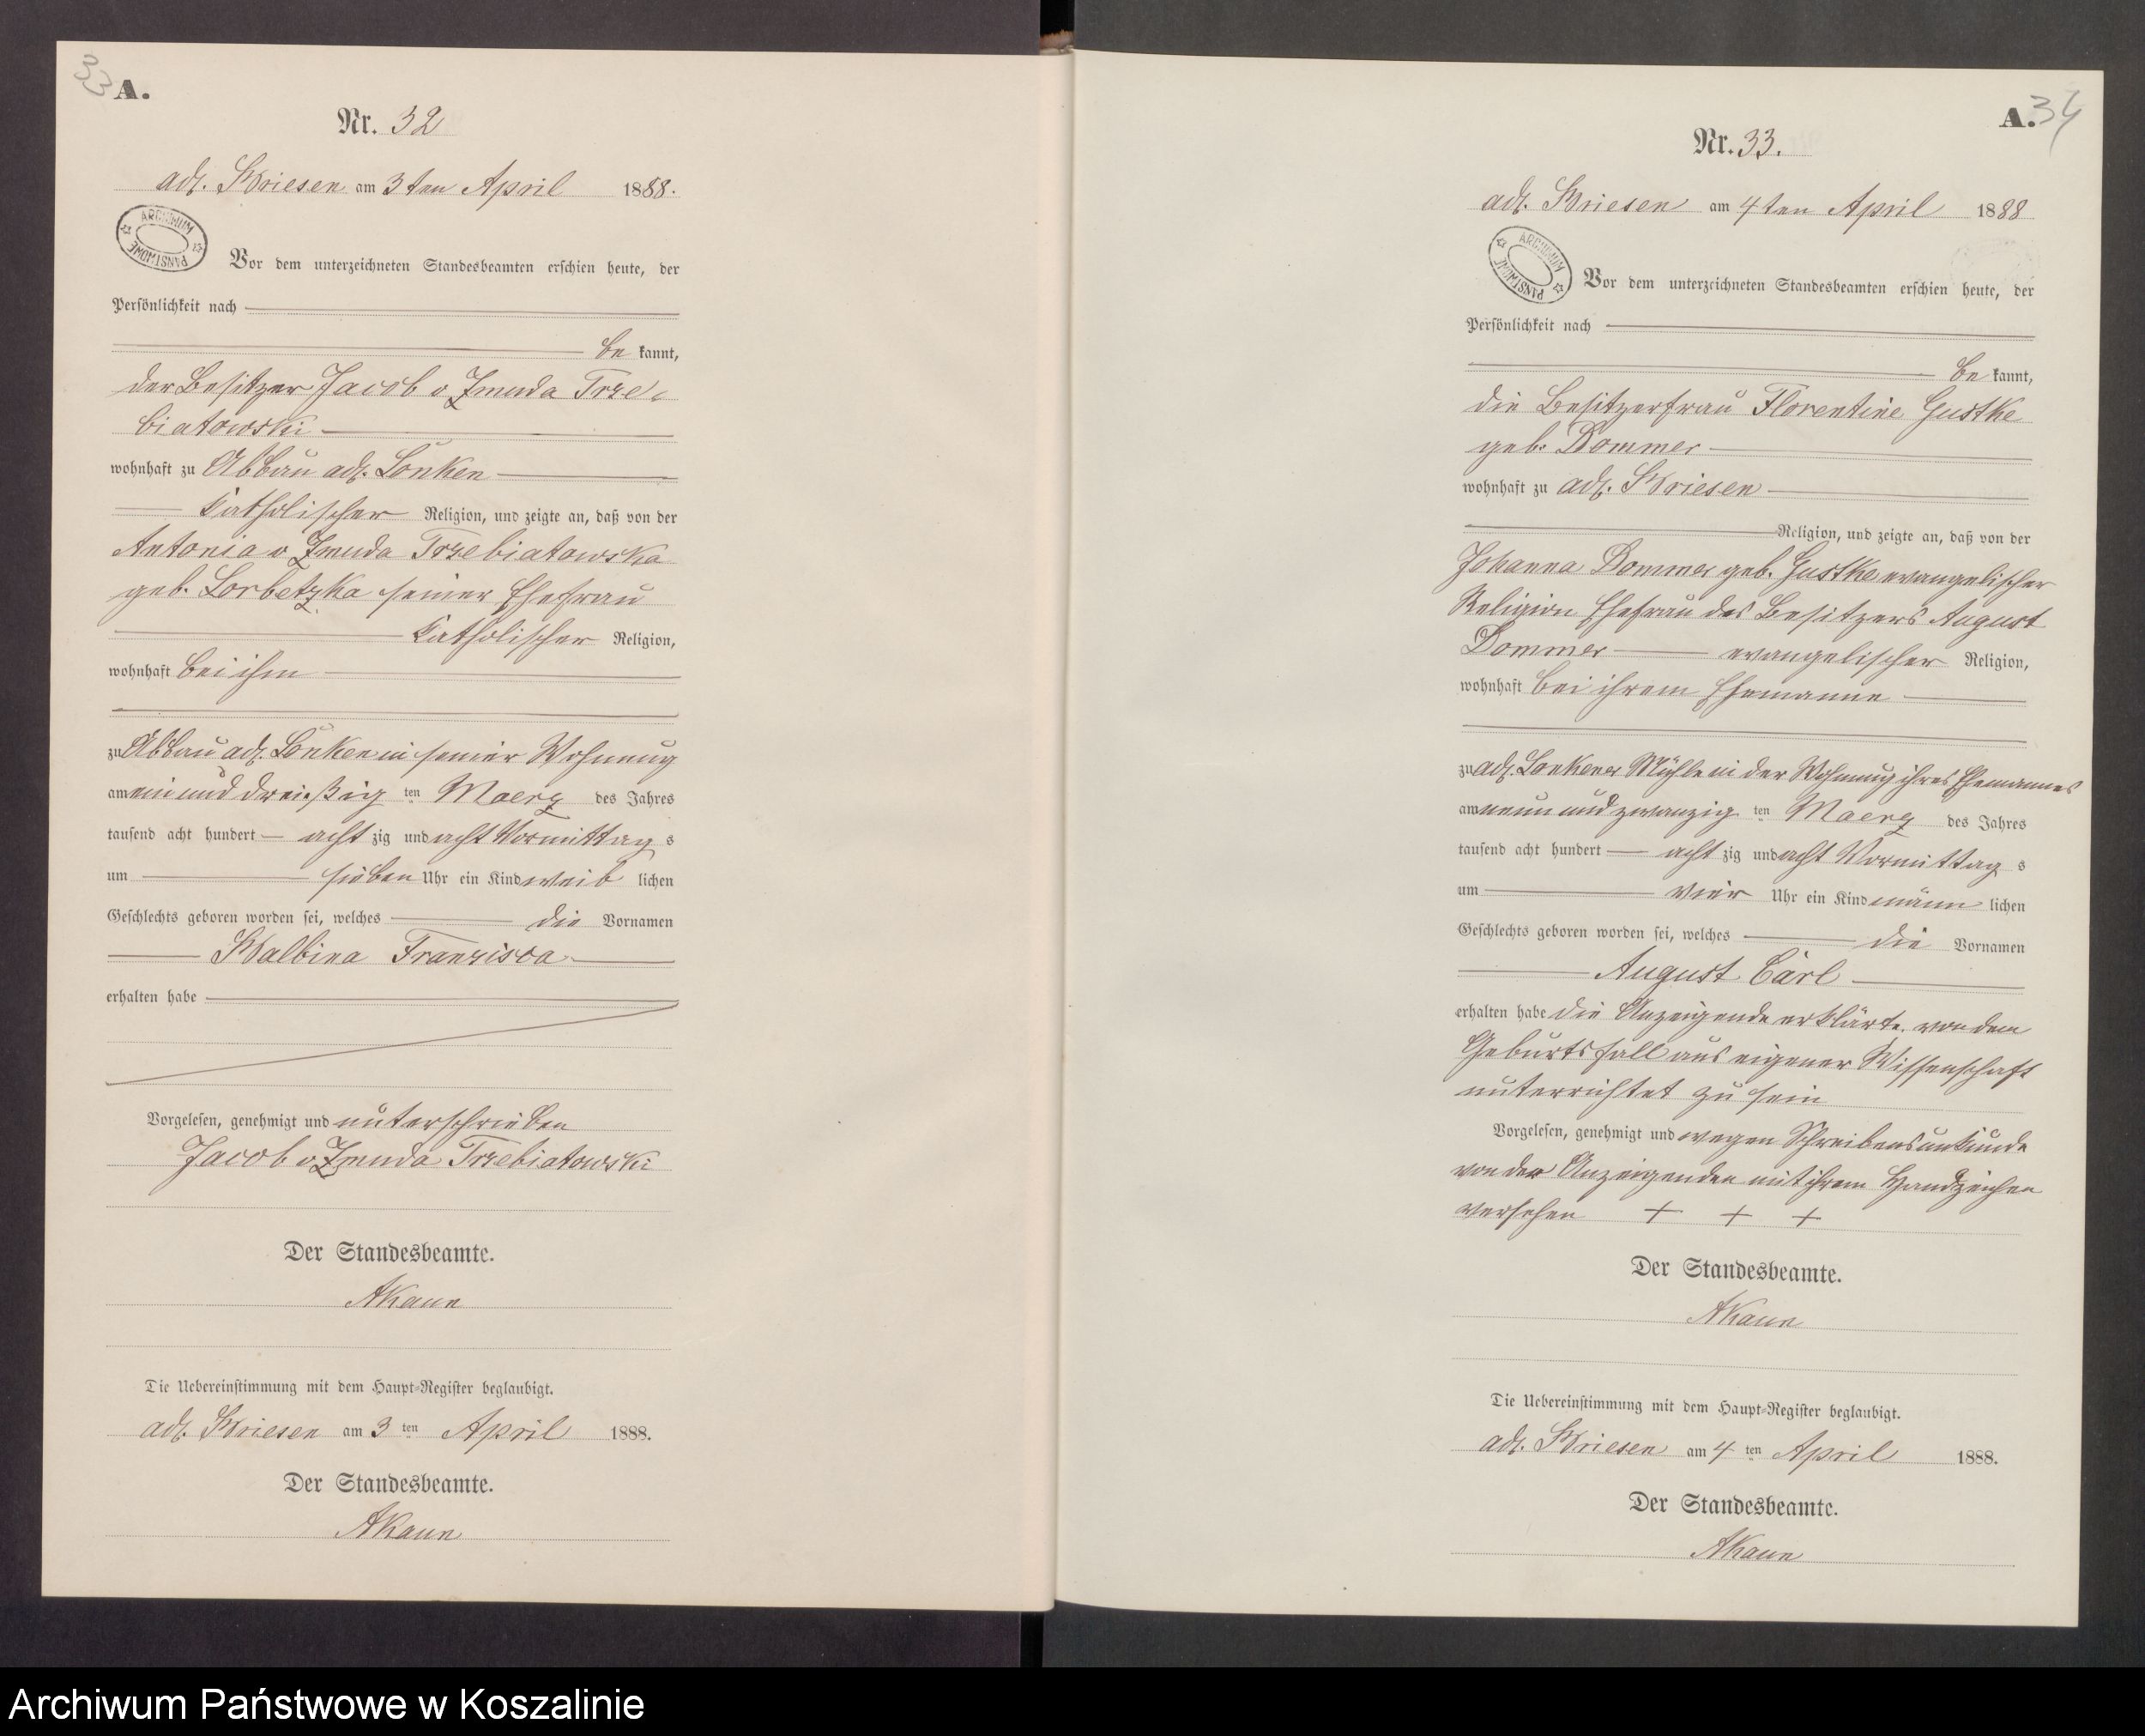 33
A.
Nr. 32
adl. Briesen am 3ten April 1888.
ARCHIWUM PAŃSTWOWE
Vor dem unterzeichneten Standesbeamten erschien heute, der
Persönlichkeit nach
be kannt,
der Besitzer Jacob v Zmuda Trze-
biatowski
wohnhaft zu Abbau adl. Lonken
katholischer Religion, und zeigte an, daß von der
Antonia v Zmuda Trzebiatowska
geb. Lorbetzka seiner Ehefrau
katholischer Religion,
wohnhaft bei ihm
zu Abbau adl. Lonken in seiner Wohnung
am ein und dreißig ten Maerz des Jahres
tausend acht hundert acht zig und acht Vormittag s
um sieben Uhr ein Kind weib lichen
Geschlechts geboren worden sei, welches die Vornamen
Balbina Franzisca
erhalten habe
Vorgelesen, genehmigt und unterschrieben
Jacob v Zmuda Trzebiatowski
Der Standesbeamte.
AKaun
Die Uebereinstimmung mit dem Haupt-Register beglaubigt.
adl. Briesen am 3 ten April 1888.
Der Standesbeamte.
AKaun
A. 34
Nr. 33.
adl. Briesen am 4ten April 1888
ARCHIWUM PAŃSTWOWE
Vor dem unterzeichneten Standesbeamten erschien heute, der
Persönlichkeit nach
be kannt,
die Besitzerfrau Florentine Gustke
geb. Dommer
wohnhaft zu adl. Briesen
Religion, und zeigte an, daß von der
Johanna Dommer geb. Gustke evangelischer
Religion Ehefrau des Besitzers August
Dommer evangelischer Religion,
wohnhaft bei ihrem Ehemanne
zu adl. Lonkener Mühle in der Wohnung ihres Ehemannes
am neun und zwanzig ten Maerz des Jahres
tausend acht hundert acht zig und acht Vormittag s
um vier Uhr ein Kind männ lichen
Geschlechts geboren worden sei, welches die Vornamen
August Carl
erhalten habe die Anzeigende erklärte von dem
Geburtsfall aus eigener Wissenschaft
unterrichtet zu sein
Vorgelesen, genehmigt und wegen Schreibensunkunde
von der Anzeigenden mit ihrem Handzeichen
versehen + + +
Der Standesbeamte.
AKaun
Die Uebereinstimmung mit dem Haupt-Register beglaubigt.
adl. Briesen am 4 ten April 1888.
Der Standesbeamte.
AKaun
Archiwum Państwowe w Koszalinie